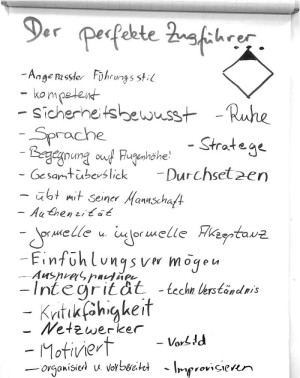 Der perfekte Zugführer...
- Angepasster Führungsstil
- kompetent
- sicherheitsbewusst - Ruhe
- Sprache
- Stratege
- Begegnung auf Augenhöhe!
- Gesamtüberslick - Durchsetzen
- übt mit seiner Mannschaft
- Authenzität
- formelle u. informelle Akzeptanz
- Einfühlungsvermögen
- Ansprechpartner
- Integrität - techn. Verständnis
- Kritikfähigkeit
- Netzwerker
- Motiviert - Vorbild
- organisiert u. vorbereitet - Improvisieren